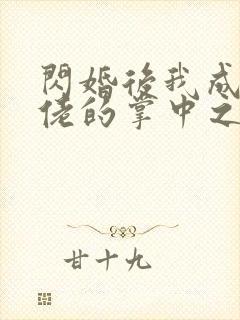 閃婚後我成
佬的掌中之
甘十九